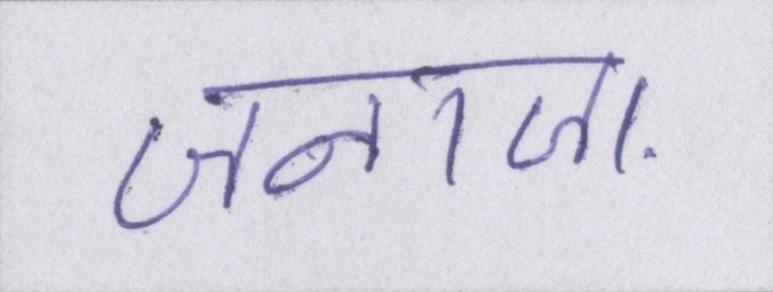 जनाजा.